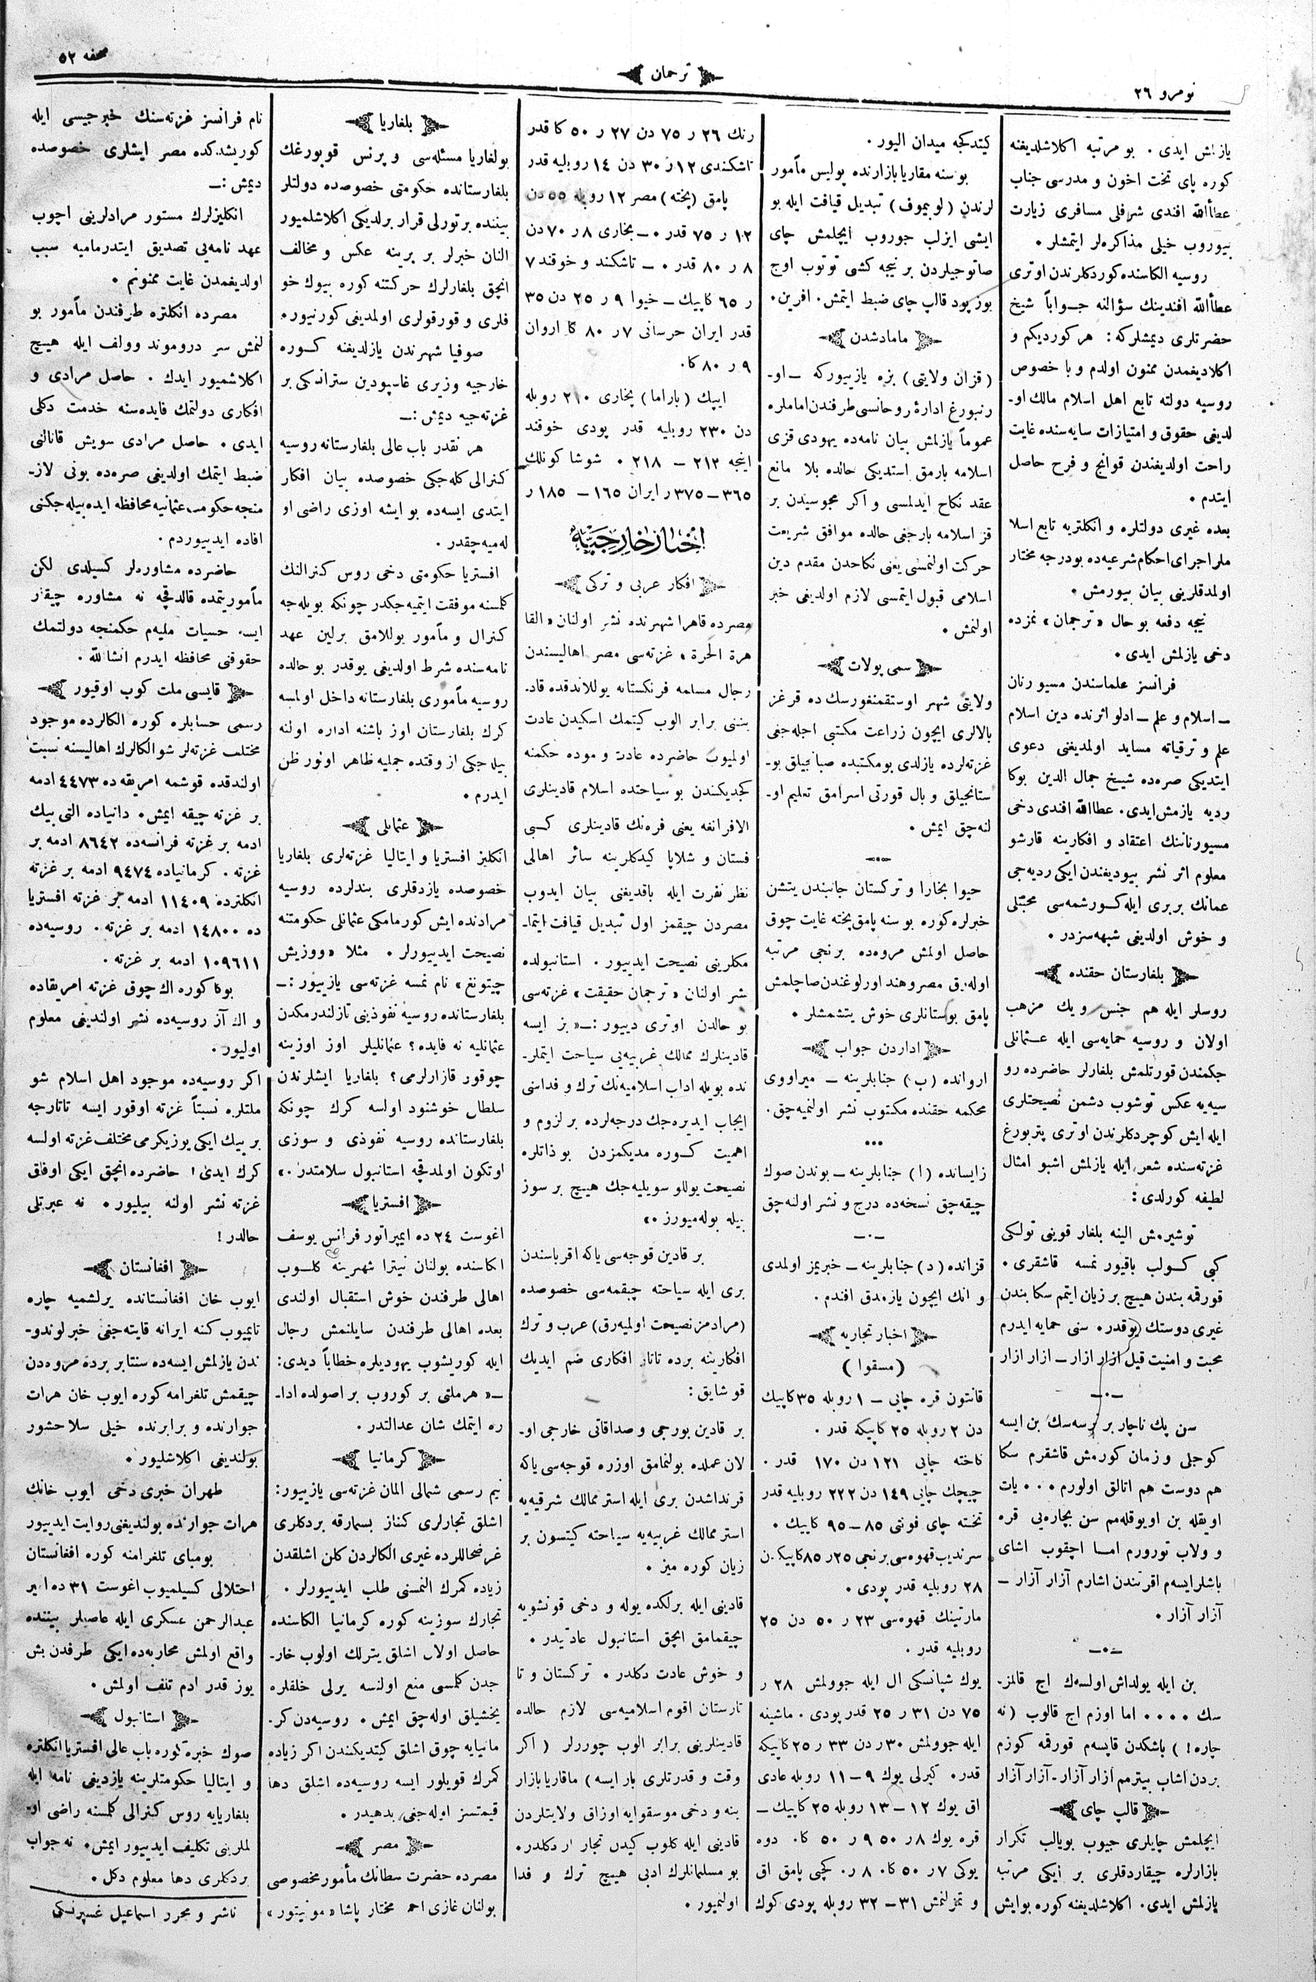 نومرو ٢٦
ترجمان
صحفه ٥٢
يازلش ايدى . بو مرتبه اكلاشلديغنه
كوره پاى تخت اخون و مدرسى جناب
عطأالله افندى شرفلى مسافرى زيارت
بيوروب خيلى مذاكره‌لر ايتمشلر .
روسيه الكاسنده كوردكلرندن اوترى
عطأالله افندينك سؤالنه جواباً شيخ
حضرتلرى ديمشلركه : هر كورديكم و
اكلاديغمدن ممنون اولدم و با خصوص
روسيه دولته تابع اهل اسلام مالك او-
لديغى حقوق و امتيازات سايه‌سنده غايت
راحت اولديغندن قوانج و فرح حاصل
ايتدم .
بعده غيرى دولتلره و انكلتريه تابع اسلا
ملر اجراى احكام شرعيه‌ده بودرجه مختار
اولمدقلرينى بيان بيورمش .
نيجه دفعه بو حال « ترجمان » نمزده
دخى يازلمش ايدى .
فرانسز علماسندن مسيو رنان
ــ اسلام و علم ــ ادلو اثرنده دين اسلام
علم و ترقياته مسايد اولمديغنى دعوى
ايتديكى صره‌ده شيخ جمال الدين بوكا
رديه يازمش ايدى . عطاالله افندى دخى
مسيورنانك اعتقاد و افكارينه قارشو
معلوم اثر نشر بيوديغندن ايكى رديه‌جى
عمانك بربرى ايله كورشمه‌سى محبتلى
و خوش اولديغى شبهه‌سزدر .
بلغارستان حقنده
روسلر ايله هم جنس و يك مزهب
اولان و روسيه حمايه‌سى ايله عثمانلى
حكمندن قورتلمش بلغارلر حاضرده رو
سيه‌يه عكس توشوب دشمن نصيحتلرى
ايله ايش كوچردكلرندن اوترى پتربورغ
غزته‌سنده شعر ايله يازلمش اشبو امثال
لطيفه كورلدى :
توشيرمش الينه بلغار قوينى تولكى
كبى كولب باقيور نمسه قاشقرى .
قورقمه بندن هيچ بر زيان ايتمم سكا بندن
غيرى دوستك يوقدر . سنى حمايه ايدرم
محبت و امنيت قيل ازار ازار ــ ازار ازار
سن پك ناچار بر برسه‌سك بن ايسه
كوجلى و زمان كورمش قاشقرم سكا
هم دوست هم اتالق اولورم . . . يات
اويقله بن اويوقله‌مم سن بچاره‌يى قره
و ولاب تورورم اما اچقوب اشاى
باشلرايسم اقرتندن اشارم آزار آزار ــ
آزار آزار .
بن ايله يولداش اولسه‌ك اج قالمز-
سك . . . . اما اوزم اج قالوب ( نه
چاره ! ) باشكدن قاپسم قورقمه كوزم
بردن اشاب بيترمم ازار آزار ـ آزار آزار
قالپ چاى
ايچلمش چايلرى جيوب بويالب تكرار
بازارلره چيقاردقلرى بر ايكى مرتبه
يازلمش ايدى . اكلاشلديغنه كوره بوايش
كيتدكجه ميدان اليور .
بوسنه مقاريا بازارنده پوليس مأمور
لرندن ( لوبيموف ) تبديل قيافت ايله بو
ايشى ايزلپ جوروب ايچلمش چاى
صاتوجيلردن بر نيجه كشى توتوب اوج
يوز پود قالپ چاى ضبط ايتمش . افرين .
مامادشدن
( قزان ولايتى ) بزه يازييوركه ــ او-
رنبورغ ادارۀ روحانسى طرفندن اماملره
عموماً يازلمش بيان نامه‌ده يهودى قزى
اسلامه بارمق استديكى حالده بلا مانع
عقد نكاح ايدلمسى و اكر مجوسيدن بر
قز اسلامه بارجفى حالده موافق شريعت
حركت اولنمسى يغنى نكاحدن مقدم دين
اسلامى قبول ايتمسى لازم اولديغى خبر
اولنمش .
سمى پولات
ولايتى شهر اوستقمنغورسك ده قرغز
بالالرى ايچون زراعت مكتبى اجله‌جفى
غزته‌لرده يازلدى بومكتبده صبانجيلق بو-
ستانجيلق و بال قورتى اسرامق تعليم او-
لنه‌چق ايمش .
حيوا بخارا و تركستان جانبدن يتشن
خبرلره كوره بوسنه پامق پخته غايت چوق
حاصل اولمش مروه‌ده برنجى مرتبه
اوله‌رق مصروهند اورلوغندن صاچلمش
پامق بوستانلرى خوش يتشمشلر .
اداردن جواب
اروانده ( ب ) جنابلرينه ــ ميراووى
محكمه حقنده مكتوب نشر اولنميه‌چق .
زايسانده ( ا ) جنابلرينه ــ بوندن صوك
چيقه‌چق نسخه‌ده درج و نشر اولنه‌چق
قزانده ( د ) جنابلرينه ــ خبريمز اولمدى
و انك ايچون يازه‌مدق افندم .
اخبار تجاريه
( مسقوا )
قانتون قره چايى ــ ١ روبله ٣٥ كاپيك
دن ٢ روبله ٢٥ كاپيكه قدر .
تاخته چايى ١٢١ دن ١٧٠ قدر .
چيچك چايى ١٤٩ دن ٢٢٢ روبليه قدر
تخته چاى فونتى ٨٥ ــ ٩٥ كاپيك .
سرنديب قهوه‌سى برنجى ٢٥ ر ٨٥ كاپيكدن
٢٨ روبليه قدر پودى .
مارتينك قهوه‌سى ٢٣ ر ٥٠ دن ٢٥
روبليه قدر .
يوك شپانسكى ال ايله جوولمش ٢٨ ر
٧٥ دن ٣١ ر ٢٥ قدر پودى . ماشينه
ايله جوولمش ٣٠ ر دن ٣٣ ر ٢٥ كاپيكه
قدر . كيرلى يوك ٩ ــ ١١ روبله عادى
اق يوك ١٢ ــ ١٣ روبله ٢٥ كاپيك ــ
قره يوك ٨ ر ٥٠ ٩ ر ٥٠ كا . دوه
يوكى ٧ ر ٥٠ كا . ٨ ر . كچى پامق اق
و تمزلنمش ٣١ ــ ٣٢ روبله پودى كوك
رنك ٢٦ ر ٧٥ دن ٢٧ ر ٥٠ كا قدر
تاشكندى ١٢ ر ٣٠ دن ١٤ روبليه قدر
پامق ( پخته ) مصر ١٢ روبله ٥٥ دن
١٢ ر ٧٥ قدر . ــ بخارى ٨ ر ٧٠ دن
٨ ر ٨٠ قدر . ــ تاشكند و خوقند ٧
ر ٦٥ كاپيك ــ خيوا ٩ ر ٢٥ دن ٣٥
قدر ايران خرسانى ٧ ر ٨٠ كا اروان
٩ ر ٨٠ كا .
ايپك ( باراما ) بخارى ٢١٠ روبله
دن ٢٣٠ روبليه قدر پودى خوقند
اينجه ٢١٢ ــ ٢١٨ . شوشا كونلك
٣٦٥ ــ ٣٧٥ ر ايران ١٦٥ ــ ١٨٥ ر
اخبار خارجيه
افكار عربى و تركى
مصرده قاهرا شهرنده نشر اولنان « القا
هرة الحرة » غزته‌سى مصر اهاليسندن
رجال مسلمه فرنكستانه يوللاندقده قاد-
ينى برابر الوب كيتمك اسكيدن عادت
اولميوب حاضرده عادت و موده حكمنه
كجديكندن بوسياحتده اسلام قادينلرى
الافرانغه يغنى فره‌نك قادينلرى كبى
فستان و شلاپا كيدكلرينه سائر اهالى
نظر نفرت ايله باقديغنى بيان ايدوب
مصردن چيقمز اول تبديل قيافت ايتما-
مكلرينى نصيحت ايدييور . استانبولده
نشر اولنان « ترجمان حقيقت » غزته‌سى
بو حالدن اوترى ديبور : ــ « بز ايسه
قادينلرك ممالك غربيه‌يى سياحت ايتملر-
نده بويله اداب اسلاميه‌نك ترك و فداسنى
ايجاب ايديره‌جك درجه‌لرده بر لزوم و
اهميت كوره مديكمزدن بو ذاتلره
نصيحت يوللو سويليه‌جك هيچ بر سوز
بيله بوله‌ميورز . »
بر قادين قوجه‌سى ياكه اقرباسندن
برى ايله سياحته چيقمه‌سى خصوصده
( مرادمز نصيحت اولميه‌رق ) عرب و ترك
افكارينه برده تاتار افكارى ضم ايديك
قو شايق :
بر قادين بورجى و صداقاتى خارجى او-
لان عملده بولنمامق اوزره قوجه‌سى ياكه
قرنداشدن برى ايله استر ممالك شرقيه‌يه
استر ممالك غربيه‌يه سياحته كيتسون بر
زيان كوره ميز .
قادينى ايله برلكده يوله و دخى قونشويه
چيقمامق انچق استانبول عادتيدر .
و خوش عادت دكلدر . تركستان و تا
تارستان اقوم اسلاميه‌سى لازم حالده
قادينلرينى برابر الوب چوررلر ( اكر
وقت و قدرتلرى بار ايسه ) ماقاريا بازار
ينه و دخى موسقوايه اوزاق ولايتلردن
قادينى ايله كلوب كيدن تجار از دكلدر .
بو مسلمانلرك ادبى هيچ ترك و فدا
اولنميور .
بلغاريا
بولغاريا مسئله‌سى و پرنس قوبورغك
بلغارستانده حكومتى خصوصده دولتلر
بيننده برتورلى قرار برلديكى اكلاشلميور
النان خبرلر بر برينه عكس و مخالف
انچق بلغارلرك حركتنه كوره بيوك خو
فلرى و قورقولرى اولمديغى كورنيور .
صوفيا شهرندن يازلديغنه كوره
خارجيه وزيرى غاسپودين ستراندكى بر
غزته‌جيه ديمش : ــ
هر نقدر باب عالى بلغارستانه روسيه
كنرالى كله‌جكى خصوصده بيان افكار
ايتدى ايسه‌ده بوايشه اوزى راضى او
له‌ميه‌چقدر .
افستريا حكومتى دخى روس كنرالنك
كلمسنه موفقت ايتميه‌جكدر چونكه بويله‌جه
كنرال و مأمور يوللامق برلين عهد
نامه‌سنده شرط اولديغى يوقدر بو حالده
روسيه مأمورى بلغارستانه داخل اولمسه
كرك بلغارستان اوز باشنه اداره اولنه
بيله جكى از وقتده جمليه ظاهر اولور ظن
ايدرم .
عثمانلى
انكليز افستريا و ايتاليا غزته‌لرى بلغاريا
خصوصده يازدقلرى بندلرده روسيه
مرادنده ايش كورمامكى عثمانلى حكومتنه
نصيحت ايدييورلر . مثلا « ووزيش
چيتونغ » نام نمسه غزته‌سى يازييور : ــ
بلغارستانده روسيه نفوذينى تازلندرمكدن
عثمانليه نه فايده ؟ عثمانليلر اوز اوزينه
چوقور قازارلرمى ؟ بلغاريا ايشلرندن
سلطان خوشنود اولسه كرك چونكه
بلغارستانده روسيه نفوذى و سوزى
اوتكون اولمدقجه استانبول سلامتدر . »
افستريا
اغوست ٢٤ ده ايمپراتور فرانس يوسف
الكاسنده بولنان نيترا شهرينه كلوب
اهالى طرفندن خوش استقبال اولندى
بعده اهالى طرفندن سايلنمش رجال
ايله كوريشوب يهوديلره خطاباً ديدى :
ــ « هرملتى بر كوروب بر اصولده ادا-
ره ايتمك شان عدالتدر .
كرمانيا
نيم رسمى شمالى المان غزته‌سى يازييور :
اشلق تجارلرى كناز بسمارقه بردكلرى
عرضحاللرده غيرى الكالردن كلن اشلقدن
زياده كمرك النمسنى طلب ايدييورلر .
تجارك سوزينه كوره كرمانيا الكاسنده
حاصل اولان اشلق يترلك اولوب خار-
جدن كلمسى منع اولنسه يرلى خلقلره
يخشيلق اوله‌چق ايمش . روسيه‌دن كر-
مانيايه چوق اشلق كيتديكندن اكر زياده
كمرك قويلور ايسه روسيه‌ده اشلق دها
قيمتسز اوله‌جفى بدهيدر .
مصر
مصرده حضرت سطانك مأمور مخصوصى
بولنان غازى احمد مختار پاشا « مونيتور »
نام فرانسز غزته‌سنك خبرجيسى ايله
كوريشدكده مصر ايشلرى خصوصده
ديمش : ــ
انكليزلرك مستور مرادلرينى اجوب
عهد نامه‌يى تصديق ايتدرماميه سبب
اولديغمدن غايت ممنونم .
مصرده انكلتره طرفندن مأمور بو
لنمش سر دروموند وولف ايله هيچ
اكلاشميور ايدك . حاصل مرادى و
افكارى دولتمك فايده‌سنه خدمت دكلى
ايدى . حاصل مرادى سويش قنالنى
ضبط ايتمك اولديغى صره‌ده بونى لاز-
منجه حكومت عثمانيه محافظه ايده بيله جكنى
افاده ايدييوردم .
حاضرده مشاوره‌لر كسيلدى لكن
مأموريتمده قالدقچه نه مشاوره چيقار
ايسه حسيات مليه‌م حكمنجه دولتمك
حقوقنى محافظه ايدرم انشالله .
قايسى ملت كوپ اوقيور
رسمى حسابلره كوره الكالرده موجود
مختلف غزته‌لر شو الكالرك اهاليسنه نسبت
اولندقده قوشمه امريقه ده ٤٤٧٣ ادمه
بر غزته چيقه ايمش . دانياده التى بيك
ادمه بر غزته فرانسه‌ده ٨٦٤٢ ادمه بر
غزته . كرمانياده ٩٤٧٤ ادمه بر غزته
انكلترده ١١٤٠٩ ادمه بر غزته افستريا
ده ١٤٨٠٠ ادمه بر غزته . روسيه‌ده
١٠٩٦١١ ادمه بر غزته .
بوكا كوره اك چوق غزته امريقاده
و اك آز روسيه‌ده نشر اولنديغى معلوم
اوليور .
اكر روسيه‌ده موجود اهل اسلام شو
ملتلره نسبتاً غزته اوقور ايسه تاتارجه
بر بيك ايكى يوز يكرمى مختلف غزته اولسه
كرك ايدى ! حاضرده انچق ايكى اوفاق
غزته نشر اولنه بيليور . نه عبرتلى
حالدر !
افغانستان
ايوب خان افغانستانده يرلشميه چاره
تاپميوب كنه ايرانه قايته‌جفى خبر لوندو-
ندن يازلمش ايسه‌ده سنتابر برده مروه‌دن
چيقمش تلغرامه كوره ايوب خان هرات
جوارنده و برابرنده خيلى سلاحشور
بولنديغى اكلاشليور .
طهران خبرى دخى ايوب خانك
هرات جوارنده بولنديغى روايت ايدييور
بومباى تلغرامنه كوره افغانستان
اختلالى كسيلميوب اغوست ٣١ ده امير
عبدالرحمن عسكرى ايله عاصيلر بيننده
واقع اولمش محاربه‌ده ايكى طرفدن بش
يوز قدر ادم تلف اولمش .
استانبول
صوك خبره كوره باب عالى افستريا انكلتره
و ايتاليا حكومتلرينه يازديغى نامه ايله
بلغاريايه روس كنرالى كلمسنه راضى او-
لملرينى تكليف ايدييور ايمش . نه جواب
بردكلرى دها معلوم دكل .
ناشر و محرر اسماعيل غسپرنسكى